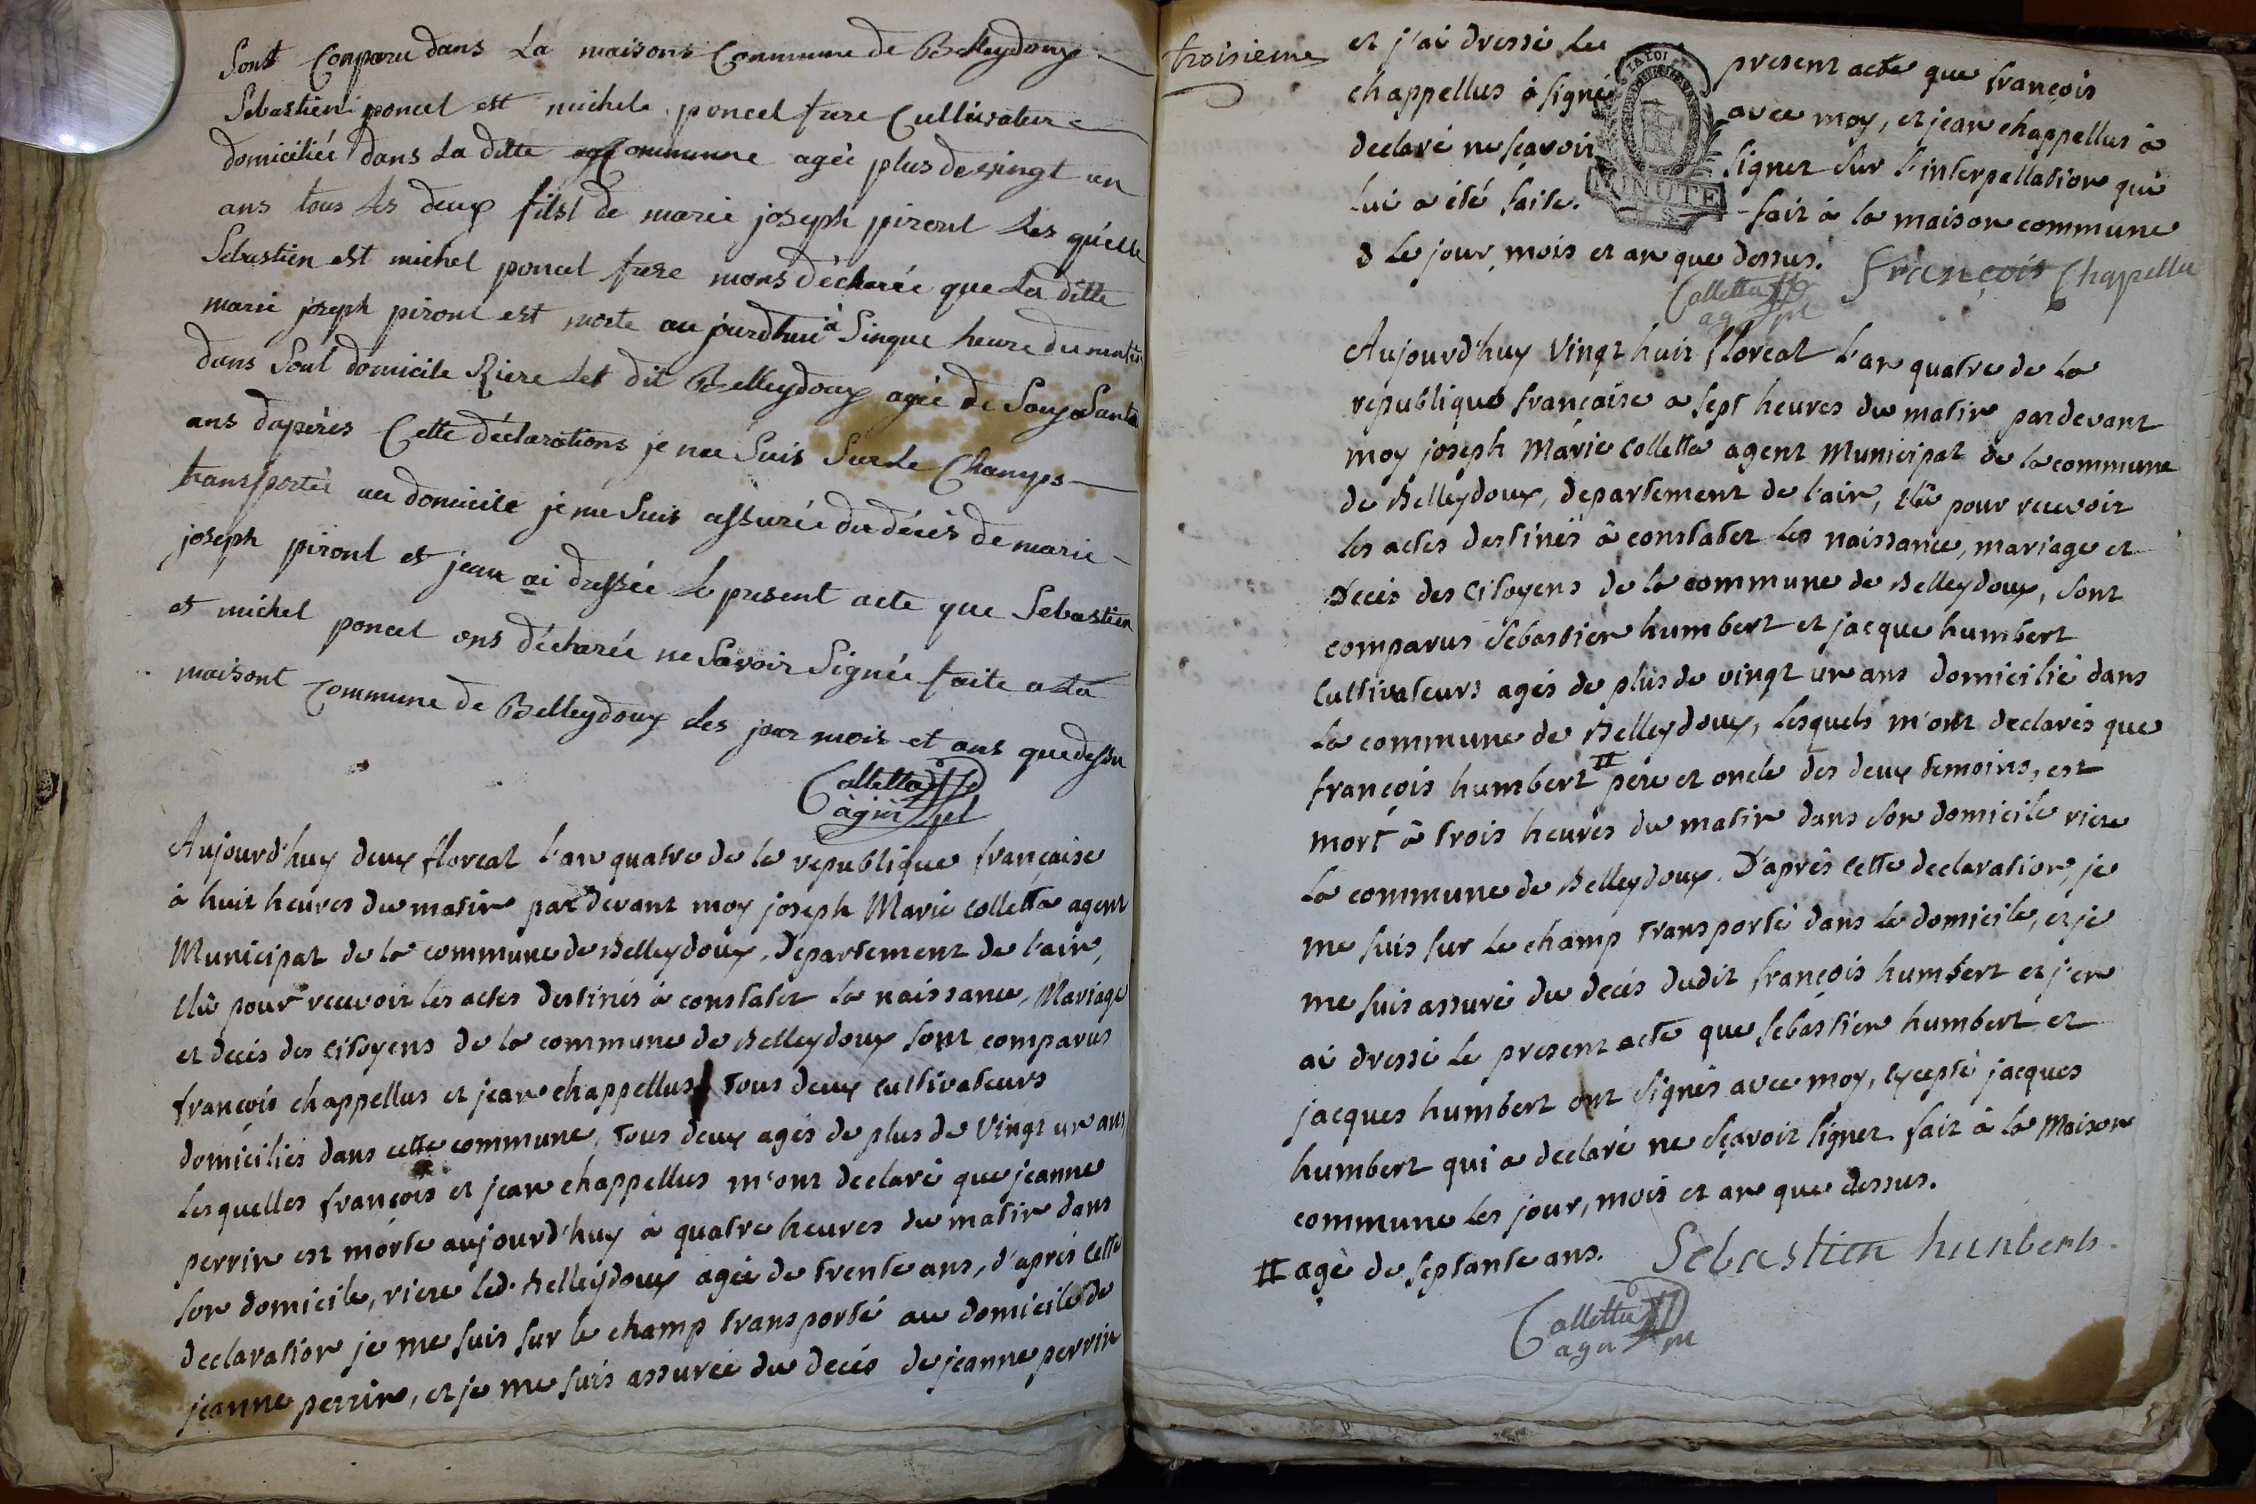 Sont Conparu dans La maisons Commune de Belleydoux
Sebastien poncet est michele poncet frere Cultivateur
domiciliée dans La ditte Commune agée plus de vingt un
ans tous Les deux filst de marie joseph piront Les quelle
Sebastien est michel poncet frere mons décharée que La ditte
marie joseph piront est morte au jourdhui à Sinque heure du matin
dans Sont domicile Riere Let dit Belleydoux agée de Soixsante
ans dapérès Cette déclarations je me Suis Surle Champs
transportée au domicile je me Suis assurée du décès de marie
joseph piront et jean ai dressée Le present acte que Sebastien
et michel poncet ons décharée ne Savoir Signée faite a La
maisont Commune de Belleydoux Les jour mois et ans que dessu
Colletta
agen pl
Aujourd'huy deux floreal l'an quatre de la republique française
à huit heures du matin par devant moy joseph Marie colletta agent
Municipal de la commune de Belleydoux, departement de l'ain,
élû pour recevoir les actes destinés à constater la naissance, Mariage
et decés des citoyens de la commune de Belleydoux sont comparus
françois chappellus et jean chappellus tous deux cultivateurs
domiciliés dans cette commune, tous deux agés de plus de vingt un ans
lesquelles françois et jean chappellus m'ont declaré que jeanne
perrin est morte aujourd'huy à quatre heures du matin dans
son domicile, riere led. Belleydoux agée de trente ans, d'aprés cette
declaration je me suis sur le champ transporté au domicile de
jeanne perrin, et je me suis assurée du decés de jeanne perrin
troisieme
et j'ai dressé le present acte que françois
chappellus à signé avec moy, et jean chappellus à
declaré ne sçavoir signer sur l'interpellation qui
lui a été faite. fait à la maison commune
LA LOI
MINUTE
le jour, mois et an que dessus.
françois Chapellu
Colletta
ag pl
Aujourd'huy vingt huit floreal l'an quatre de la
republique française a sept heures du matin pardevant
moy joseph Marie Colletta agent Municipal de la commune
de Belleydoux, departement de l'ain, élû pour recevoir
les actes destinés à constater les naissance, mariage et
Decés des Citoyens de la commune de Belleydoux, sont
comparus Sebastien humbert et jacque humbert
Cultivateurs agés de plus de vingt un ans domicilié dans
la commune de Belleydoux, lesquels m'ont declarés que
françois humbert II pére et oncle des deux temoins, est
mort à trois heures du matin dans son domicile riere
la commune de Belleydoux. D'aprês cette declaration, je
me suis sur le champ transporté dans le domicile, et je
me suis assuré du decés dudit françois humbert et j'en
ai dressé le present acte que sebastien humbert et
jacques humbert ont signés avec moy, excepté jacques
humbert qui a declaré ne sçavoir signer. fait à la Maison
commune les jour, mois et an que dessus.
II agé de septante ans.
Sebastien hunberb
Colletta
agen pl